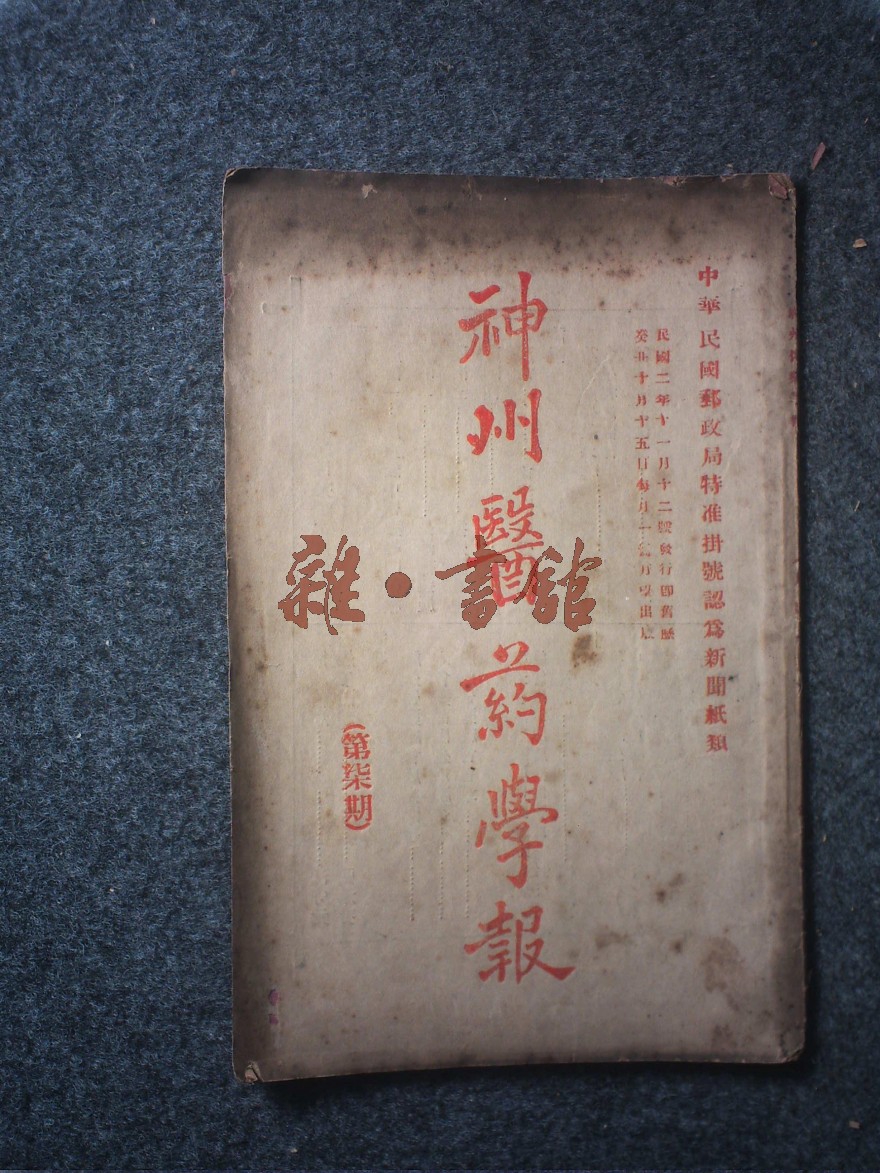 中華民國郵政局特准掛號認爲新聞紙類
民國二年十一月十二號發行卽舊曆
癸丑十月十五日每月一月出版
神州醫葯學報
(第柒期)
雜·書館